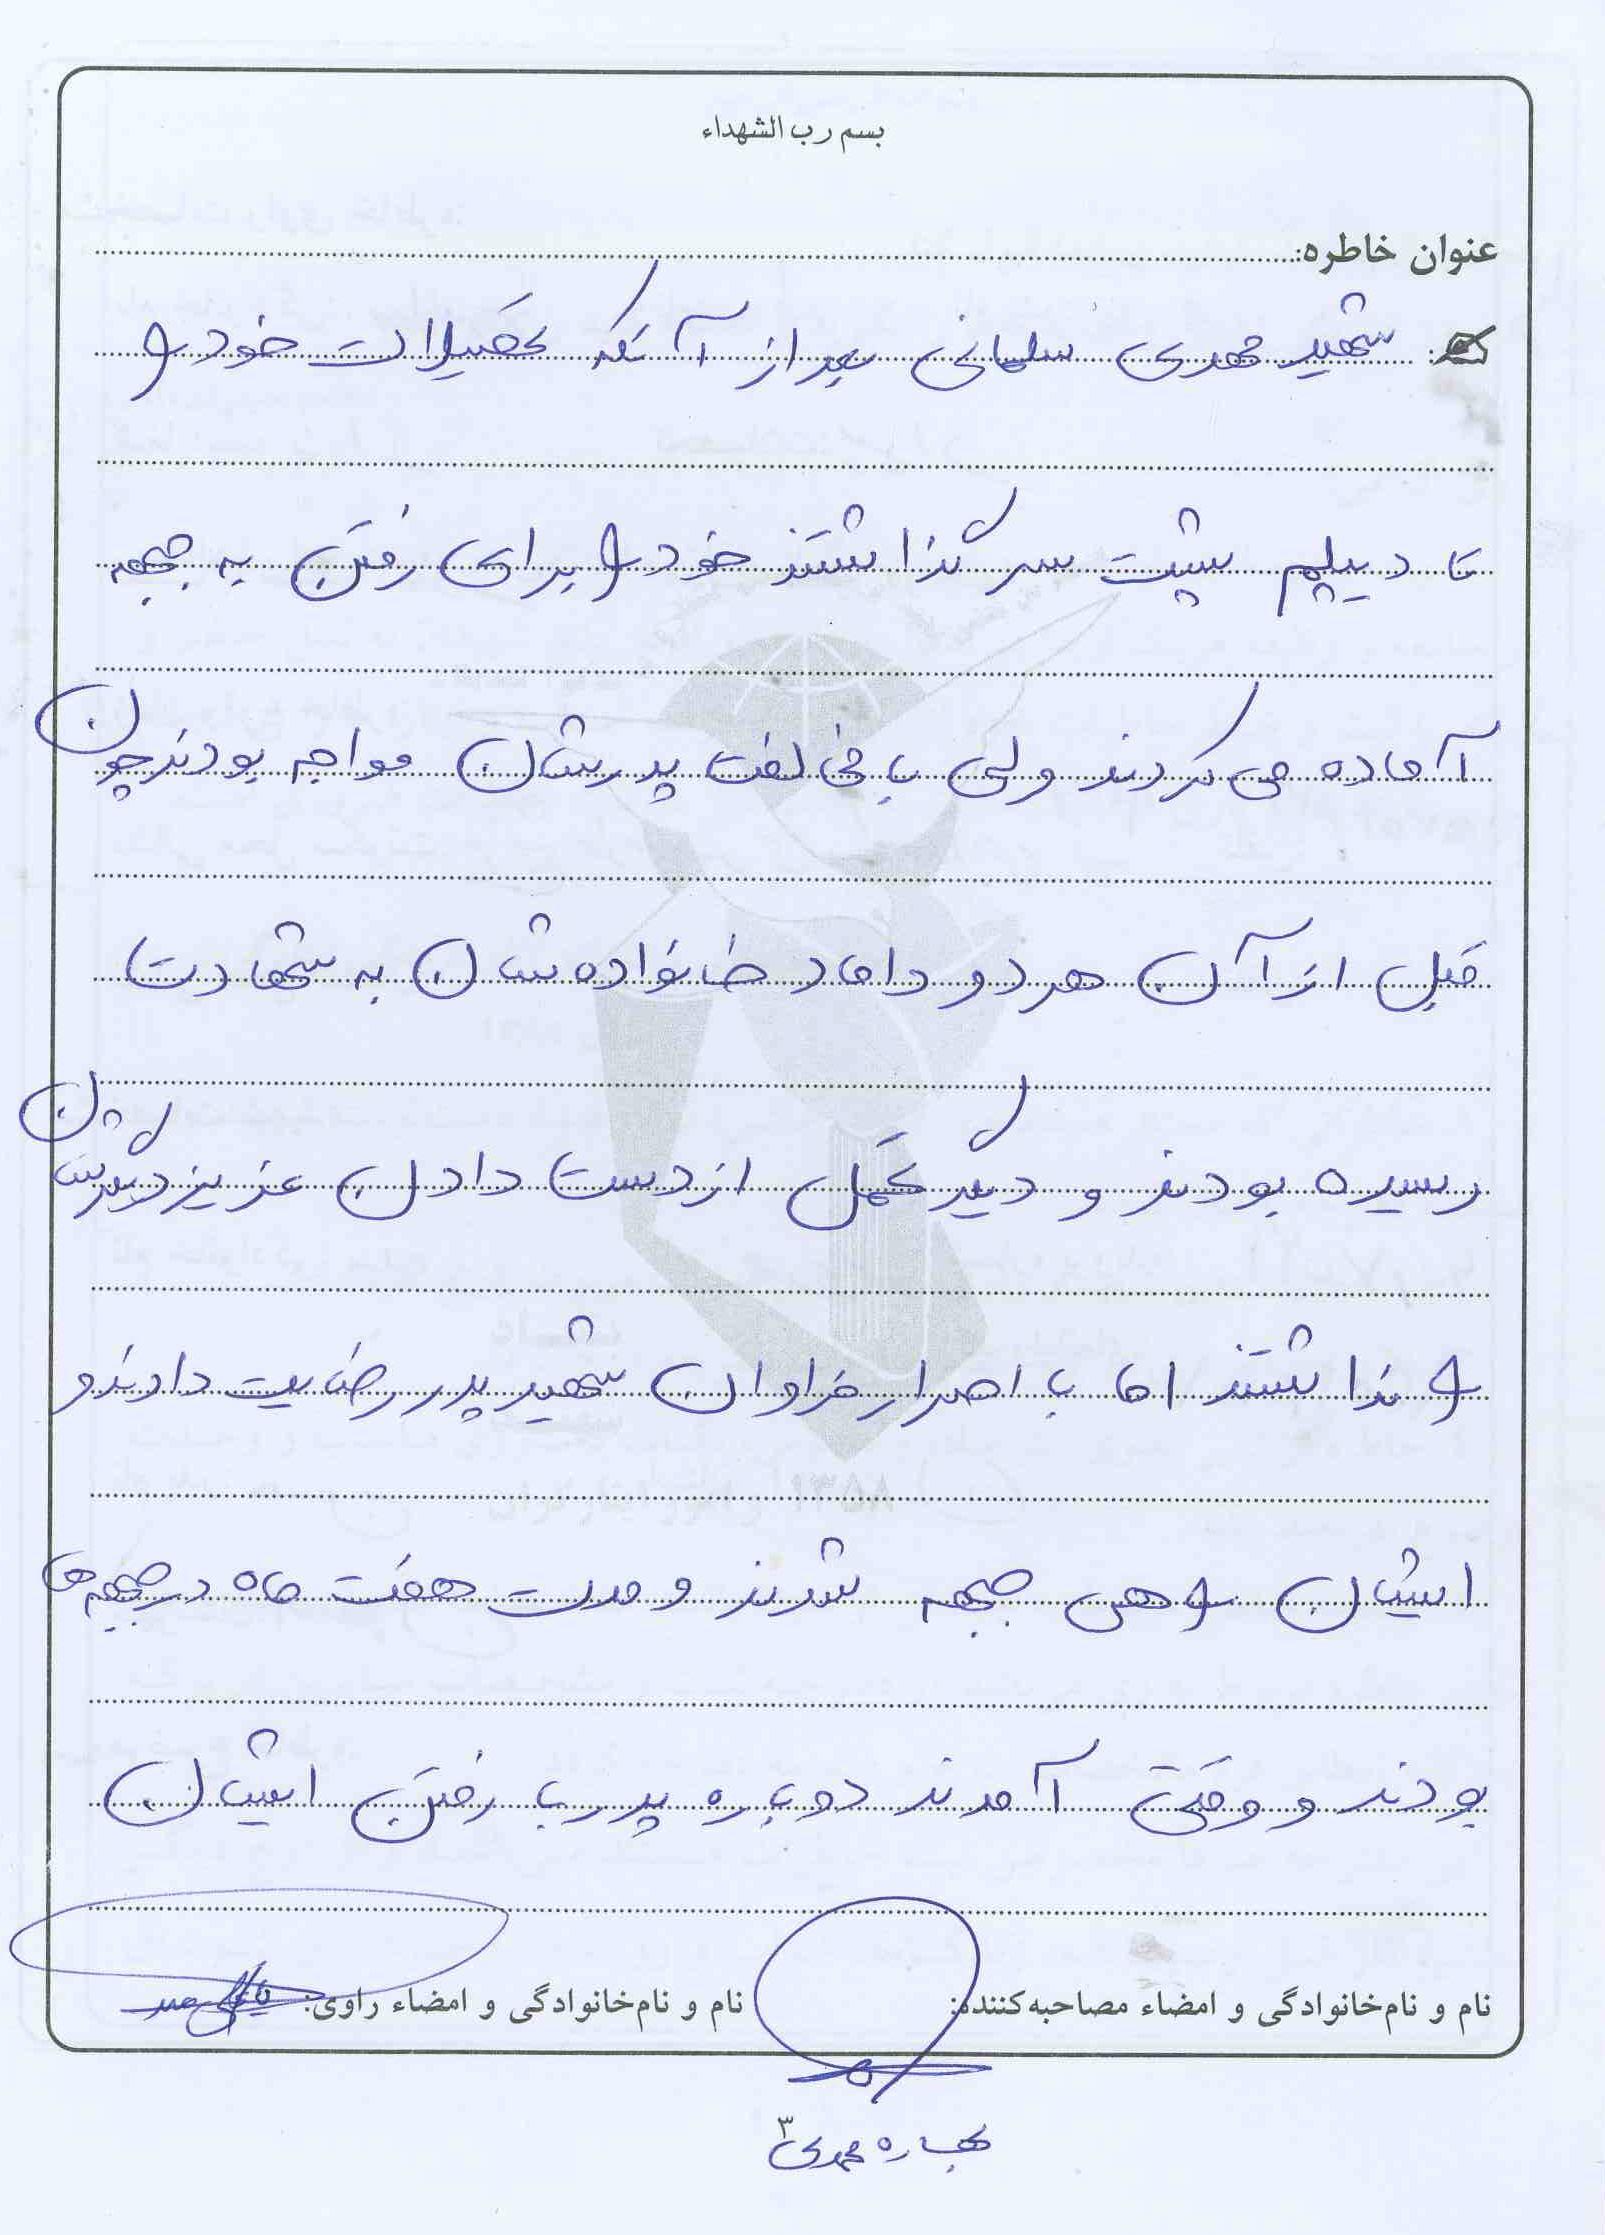 بسم رب الشهداء
عنوان خاطره:
شهید مهدی سلمانی بعد از آنکه تحصیلات خود را
تا دیپلم پشت سر گذاشتند خود را برای رفتن به جبهه
آماده می کردند ولی با مخالفت پدرشان مواجه بودند چون
قبل از آن هر دو داماد خانواده شان به شهادت
رسیده بودند و دیگر تحمل از دست دادن عزیز دیگرشان
را نداشتند اما با اصرار فراوان شهید پدر رضایت دادند و
ایشان راهی جبهه شدند و مدت هفت ماه در جبهه ها
بودند و وقتی آمدند دوباره پدر با رفتن ایشان
نام و نام‌خانوادگی و امضاء مصاحبه‌کننده: نام و نام‌خانوادگی و امضاء راوی:
۳
محمدی